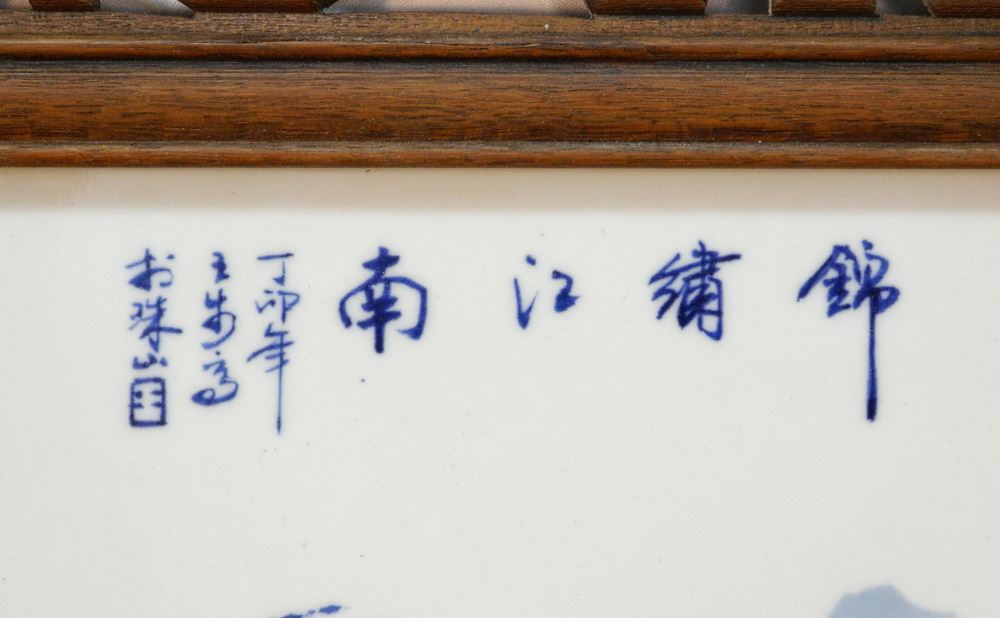 錦繡江南
丁卯年
王步高
於珠山